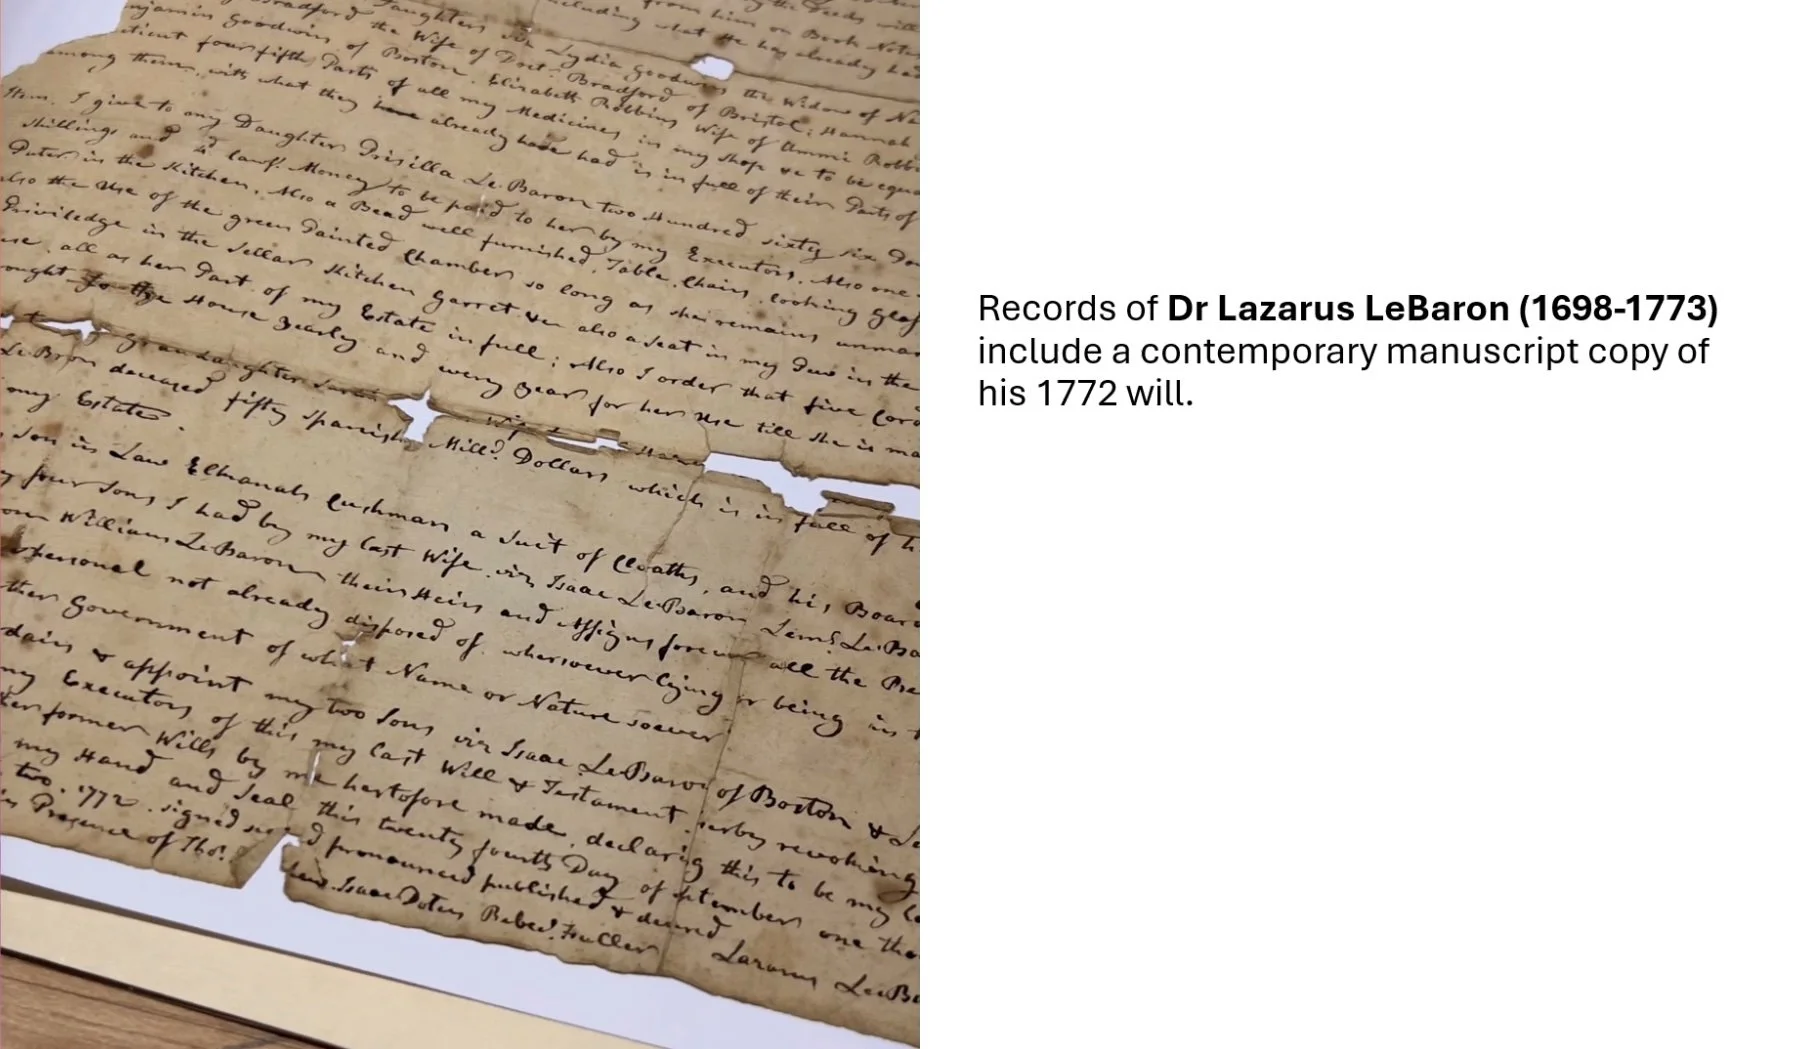 including what He has already had
Bradford Daughters viz Lydia Goodwin the Widow of Na
njamin Goodwin of Boston, Elizabeth Robbins Wife of Ammi Robb
the Wife of Doct. Bradford of Bristol; Hannah
four fifth Parts of all my Medicines in my Shop &c to be equa
among them, with what they have already had is in full of their Parts of
Item. I give to my Daughter Prisilla LeBaron two Hundred sixty six Do
shillings and lawf. Money to be paid to her by my Executors, Also one
Puter in the Kitchen, Also a Bead well furnished, Table, Chairs, looking Glass
also the Use of the green Painted Chamber so long as she remains unmar
Priviledge in the Sellar Kitchen Garret &c also a Seat in my Pew in the
use, all as her Part of my Estate in full; Also I order that five Cord
ought to the House yearly and every year for her Use till she is ma
Grandaughter Sarah
LeBron deceased fifty Spanish Mill.d Dollars which is in full of h
my Estate.
Son in Law Elkanah Cushman a Suit of Cloaths, and his Board
four Sons I had by my last Wife, viz Isaac LeBaron Lem.l LeBa
William LeBaron their Heirs and Assigns forever all the
personal not already disposed of, whersoever lying or being in
ther Government of what Name or Nature soever
dain & appoint my two Sons viz Isaac LeBaron of Boston & L
my Executors of this my last Will & Testament, herby revoking
her former Wills by me hertofore made, declarig this to be my la
my Hand and Seal this twenty fourth Day of September one tho
two. 1772. signed pronounced published &
in Presence of Tho.s
Isaac Doten Rebec.a Fuller Lazarus LeBa
Records of Dr Lazarus LeBaron (1698-1773)
include a contemporary manuscript copy of
his 1772 will.